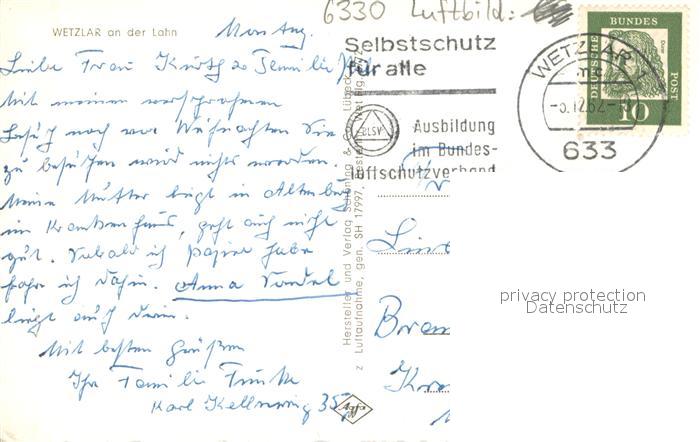 6330 Luftbild:
WETZLAR an der Lahn
Montag.
Liebe Frau Kurth u. Familie
Mit meinem versprochenen
Besuch noch vor Weihnachten Sie
zu besuchen wird nichts werden.
Meine Mutter liegt in Altenburg
im Krankenhaus, geht auch nicht
gut. Sobald ich Papier habe
fahre ich dahin. Anna
liegt auch drin.
Mit besten Grüßen
Ihre Familie
Karl Kellner 35
Selbstschutz
für alle
BLSV
Ausbildung
im Bundes-
luftschutzverband
WETZLAR 1
mc
-5.12.62-
633
DEUTSCHE BUNDES POST
Dürer
10
Hersteller und Verlag Schöning & Co., Lübeck
z Luftaufnahme, gen. SH 17997,
Agfa
privacy protection
Datenschutz